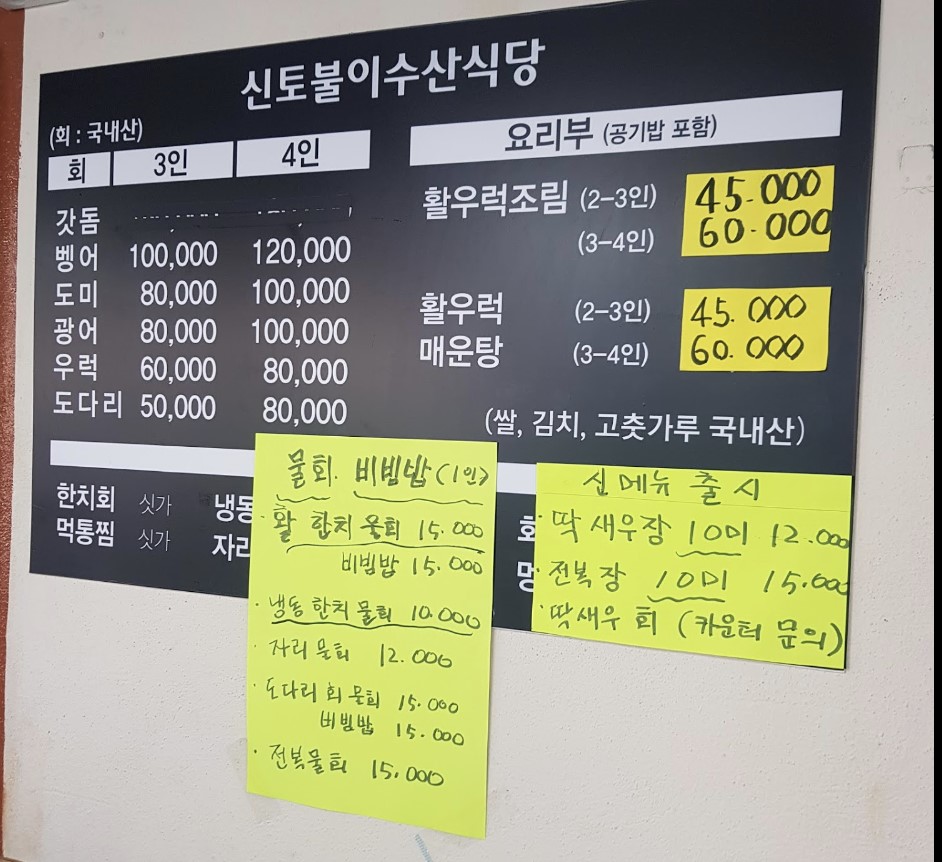 신토불이수산식당
(회 : 국내산)
회 3인 4인
갓돔
벵어 100,000 120,000
도미 80,000 100,000
광어 80,000 100,000
우럭 60,000 80,000
도다리 50,000 80,000
한치회 싯가 냉동
먹통찜 싯가 자리
요리부 (공기밥 포함)
활우럭조림 (2-3인) 45.000
(3-4인) 60.000
활우럭 (2-3인) 45.000
매운탕 (3-4인) 60.000
(쌀, 김치, 고춧가루 국내산)
물회. 비빔밥 (1인)
· 활 한치 물회 15.000
비빔밥 15.000
· 냉동 한치 물회 10.000
· 자리 물회 12.000
· 도다리 회 물회 15.000
비빔밥 15.000
· 전복물회 15.000
신메뉴 출시
· 딱새우장 10미 12.000
· 전복장 10미 15.000
· 딱새우 회 (카운터 문의)